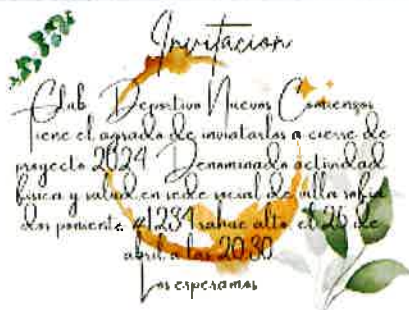 Invitacion
Club Deportivo Nuevos Comienzos
tiene el agrado de inviatarlos a cierre de
proyecto 2024 Denominado actividad
fisica y salud en sede social de villa sofia
dos poniente #1234 rahue alto el 26 de
abril a las 20:30
Los esperamos